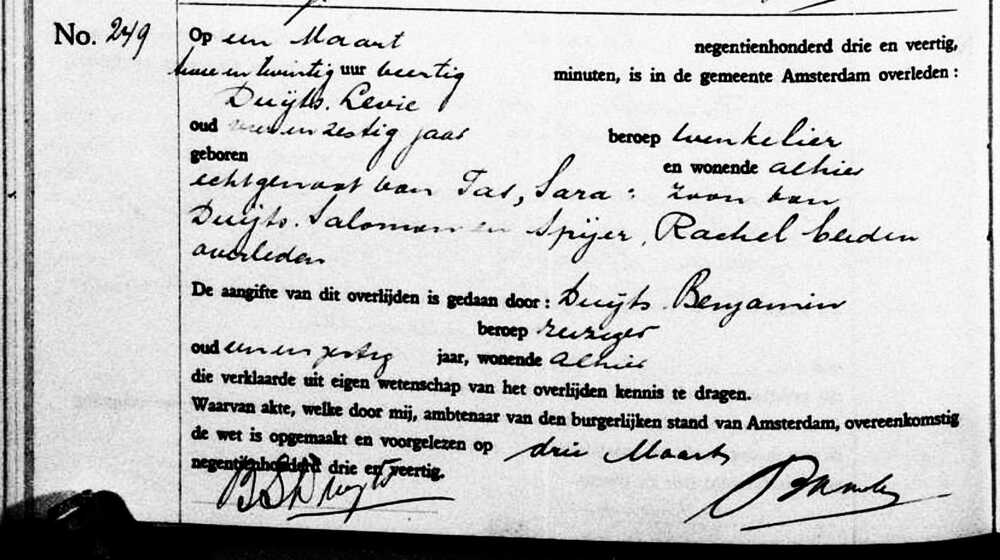 No. 249
Op een Maart negentienhonderd drie en veertig,
twee en twintig uur veertig minuten, is in de gemeente Amsterdam overleden :
Duijts. Levie
oud en zestig jaar beroep winkelier
geboren en wonende alhier
echtgenoot van Tas, Sara : zoon van
Duijts. Salomon en Spijer, Rachel beiden
overleden
De aangifte van dit overlijden is gedaan door : Duijts Benjamin
beroep reiziger
oud een en zestig jaar, wonende alhier
die verklaarde uit eigen wetenschap van het overlijden kennis te dragen.
Waarvan akte, welke door mij, ambtenaar van den burgerlijken stand van Amsterdam, overeenkomstig
de wet is opgemaakt en voorgelezen op drie Maart
negentienhonderd drie en veertig.
B S Duyts